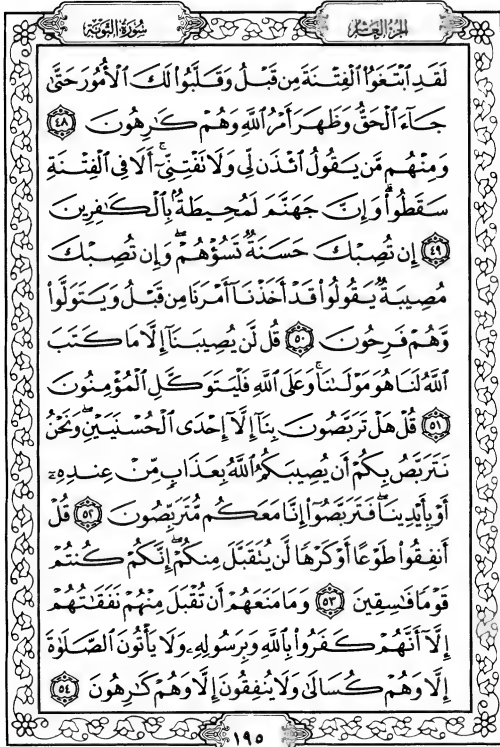 سُورَةُ التَّوْبَةِ
الجُزْءُ العَاشِرُ
لَقَدِ ٱبْتَغَوُا۟ ٱلْفِتْنَةَ مِن قَبْلُ وَقَلَّبُوا۟ لَكَ ٱلْأُمُورَ حَتَّىٰ
جَآءَ ٱلْحَقُّ وَظَهَرَ أَمْرُ ٱللَّهِ وَهُمْ كَـٰرِهُونَ ٤٨
وَمِنْهُم مَّن يَقُولُ ٱئْذَن لِّى وَلَا تَفْتِنِّىٓ ۚ أَلَا فِى ٱلْفِتْنَةِ
سَقَطُوا۟ ۗ وَإِنَّ جَهَنَّمَ لَمُحِيطَةٌۢ بِٱلْكَـٰفِرِينَ
٤٩ إِن تُصِبْكَ حَسَنَةٌ تَسُؤْهُمْ ۖ وَإِن تُصِبْكَ
مُصِيبَةٌ يَقُولُوا۟ قَدْ أَخَذْنَآ أَمْرَنَا مِن قَبْلُ وَيَتَوَلَّوا۟
وَّهُمْ فَرِحُونَ ٥٠ قُل لَّن يُصِيبَنَآ إِلَّا مَا كَتَبَ
ٱللَّهُ لَنَا هُوَ مَوْلَىٰنَا ۚ وَعَلَى ٱللَّهِ فَلْيَتَوَكَّلِ ٱلْمُؤْمِنُونَ
٥١ قُلْ هَلْ تَرَبَّصُونَ بِنَآ إِلَّآ إِحْدَى ٱلْحُسْنَيَيْنِ ۖ وَنَحْنُ
نَتَرَبَّصُ بِكُمْ أَن يُصِيبَكُمُ ٱللَّهُ بِعَذَابٍ مِّنْ عِندِهِۦٓ
أَوْ بِأَيْدِينَا ۖ فَتَرَبَّصُوٓا۟ إِنَّا مَعَكُم مُّتَرَبِّصُونَ ٥٢ قُلْ
أَنفِقُوا۟ طَوْعًا أَوْ كَرْهًا لَّن يُتَقَبَّلَ مِنكُمْ ۖ إِنَّكُمْ كُنتُمْ
قَوْمًا فَـٰسِقِينَ ٥٣ وَمَا مَنَعَهُمْ أَن تُقْبَلَ مِنْهُمْ نَفَقَـٰتُهُمْ
إِلَّآ أَنَّهُمْ كَفَرُوا۟ بِٱللَّهِ وَبِرَسُولِهِۦ وَلَا يَأْتُونَ ٱلصَّلَوٰةَ
إِلَّا وَهُمْ كُسَالَىٰ وَلَا يُنفِقُونَ إِلَّا وَهُمْ كَـٰرِهُونَ ٥٤
١٩٥